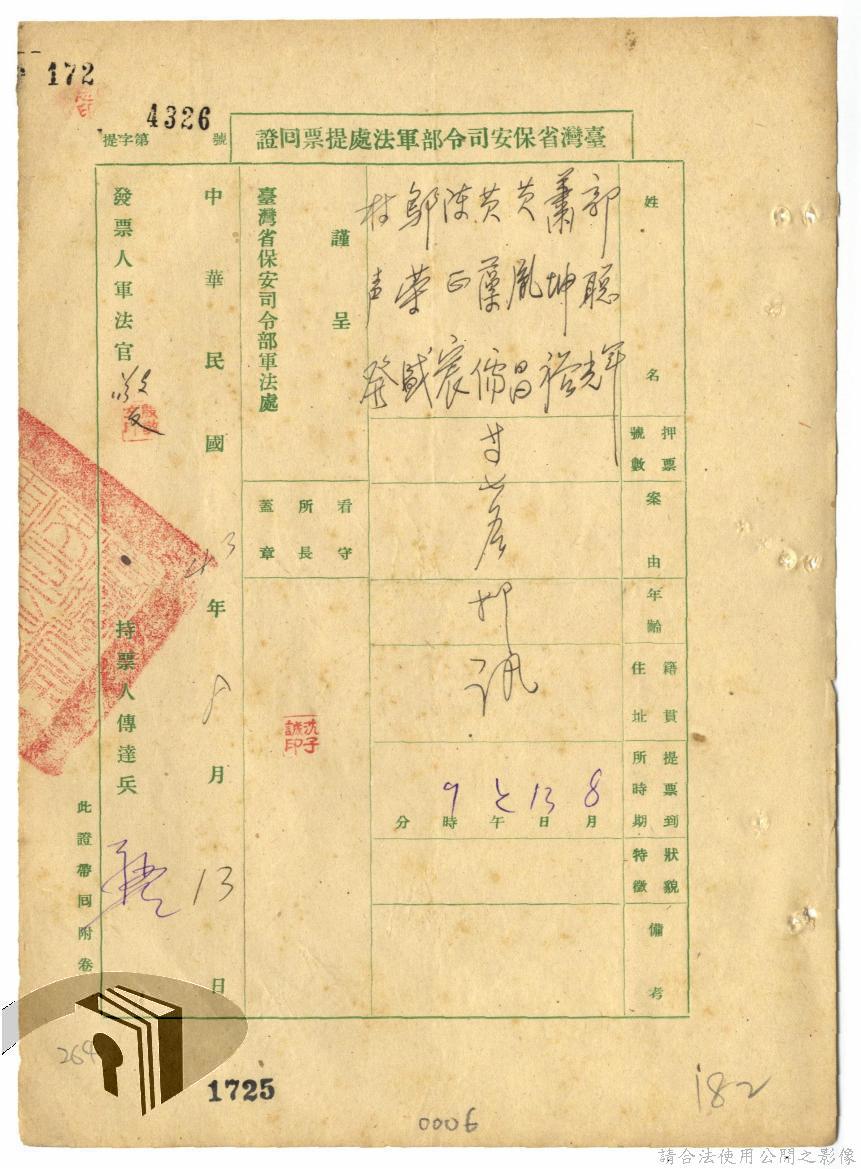 172
提字第4326號
臺灣省保安司令部軍法處提票回證
姓名
郭聰
蕭坤裕
黃胤昌
黃藻儒
陳正宸
榮盛
林声發
押票號數
案由
年齡
籍貫住址
押訊
提票到所時期
8月13日上午9時 分
狀貌特徵
備考
謹呈
臺灣省保安司令部軍法處
看守所長蓋章
沈子誠印
中華民國43年8月13日
發票人軍法官
持票人傳達兵
此證帶回附卷
264
1725
0006
182
請合法使用公開之影像